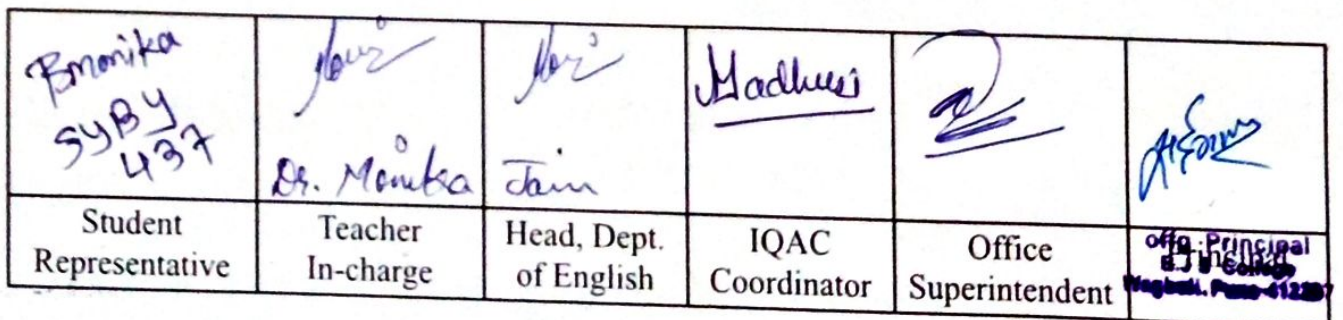 Bmonika
SYBY
437
Dr. Monika
Jain
Madhuri
Student
Representative
Teacher
In-charge
Head, Dept.
of English
IQAC
Coordinator
Office
Superintendent
offg. Principal
Principal
College
Pune-412207